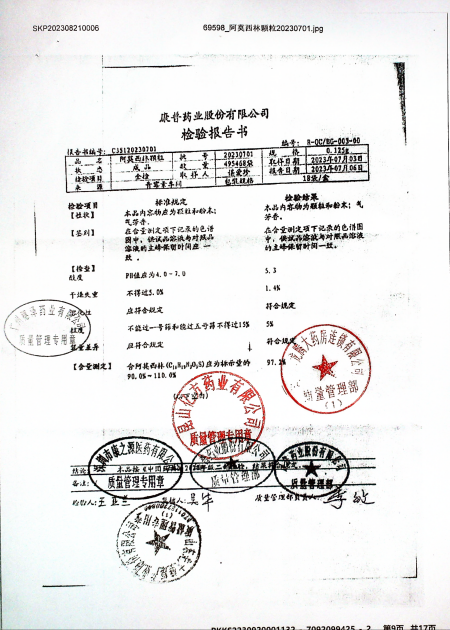 SKP202308210006 69598_阿莫西林颗粒20230701.jpg
康普药业股份有限公司
检验报告书
报告书编号: CJS120230701 编号: R-QC/BG-003-00
品名 阿莫西林颗粒 批号 20230701 规格 0.125g
状态 成品 数量 495468袋 取样日期 2023年07月03日
检验项目 全检 取样人 报告日期 2023年07月06日
来源 青霉素车间 包装规格 18袋/盒
检验项目 标准规定 检验结果
【性状】 本品内容物应为颗粒和粉末; 本品内容物为颗粒和粉末; 气
气芳香。 芳香。
【鉴别】 在含量测定项下记录的色谱 在含量测定项下记录的色谱
图中,供试品溶液与对照品 图中,供试品溶液与对照品溶液
溶液的主峰保留时间应一 的主峰保留时间一致。
致。
【检查】
酸度 PH值应为4.0-7.0 5.3
干燥失重 不得过5.0% 1.4%
应符合规定 符合规定
粒度 不能过一号筛和能过五号筛不得过15% 5%
装量差异 应符合规定 符合规定
【含量测定】 含阿莫西林(C₁₆H₁₉N₃O₅S)应为标示量的 97.2%
90.0%~110.0%
质量管理专用章
大药房连锁有限公司
质量管理部
(1)
昆山亿方药业有限公司
质量管理专用章
康之源医药有限公司
质量管理专用章
药业股份有限公司
质量管理部
结论: 本品按《中国药典》2020年版二部检验, 结果符合规定
备注:
检验人: 王 复核人: 吴华 质量管理部负责人: 李敏
第9页 共17页